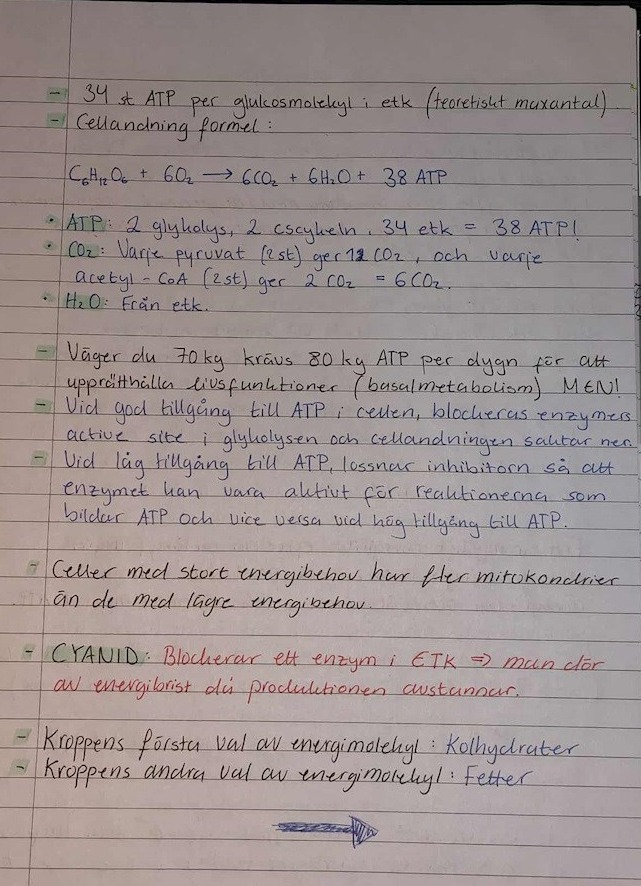 - 34 st ATP per glukosmolekyl i etk (teoretiskt maxantal)
- Cellandning formel:
C₆H₁₂O₆ + 6O₂ → 6CO₂ + 6H₂O + 38 ATP
• ATP: 2 glykolys, 2 cscykeln, 34 etk = 38 ATP!
• CO₂: Varje pyruvat (2st) ger 1 CO₂, och varje
acetyl-CoA (2st) ger 2 CO₂ = 6CO₂.
• H₂O: Från etk.
- Väger du 70kg krävs 80 kg ATP per dygn för att
upprätthålla livsfunktioner (basalmetabolism) MEN!
- Vid god tillgång till ATP i cellen, blockeras enzymers
active site i glykolysen och cellandningen saktar ner.
- Vid låg tillgång till ATP, lossnar inhibitorn så att
enzymet kan vara aktivt för reaktionerna som
bildar ATP och vice versa vid hög tillgång till ATP.
- Celler med stort energibehov har fler mitokondrier
än de med lägre energibehov.
- CYANID: Blockerar ett enzym i ETK => man dör
av energibrist då produktionen avstannar.
- Kroppens första val av energimolekyl: Kolhydrater
- Kroppens andra val av energimolekyl: Fetter